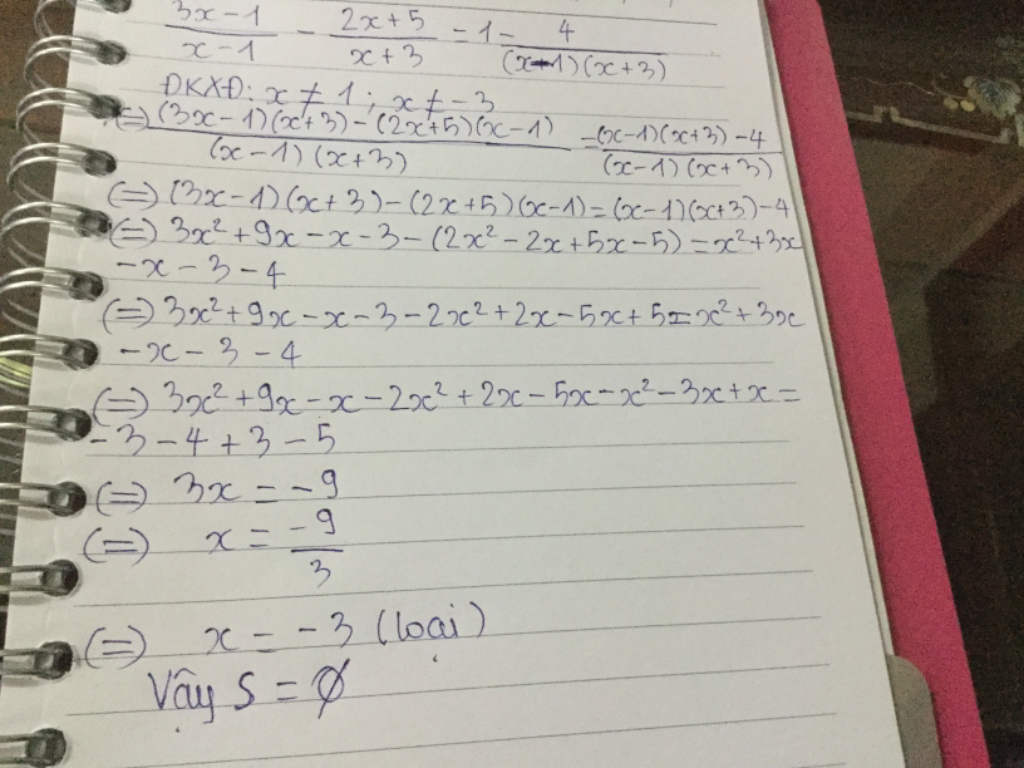 3x-1/x-1 - 2x+5/x+3 = 1 - 4/(x-1)(x+3)
ĐKXĐ: x ≠ 1 ; x ≠ -3
(=) (3x-1)(x+3)-(2x+5)(x-1)/(x-1)(x+3) = (x-1)(x+3)-4/(x-1)(x+3)
(=) (3x-1)(x+3)-(2x+5)(x-1)=(x-1)(x+3)-4
(=) 3x²+9x-x-3-(2x²-2x+5x-5)=x²+3x
-x-3-4
(=) 3x²+9x-x-3-2x²+2x-5x+5=x²+3x
-x-3-4
(=) 3x²+9x-x-2x²+2x-5x-x²-3x+x=
-3-4+3-5
(=) 3x = -9
(=) x = -9/3
(=) x = -3 (loại)
Vậy S = ∅